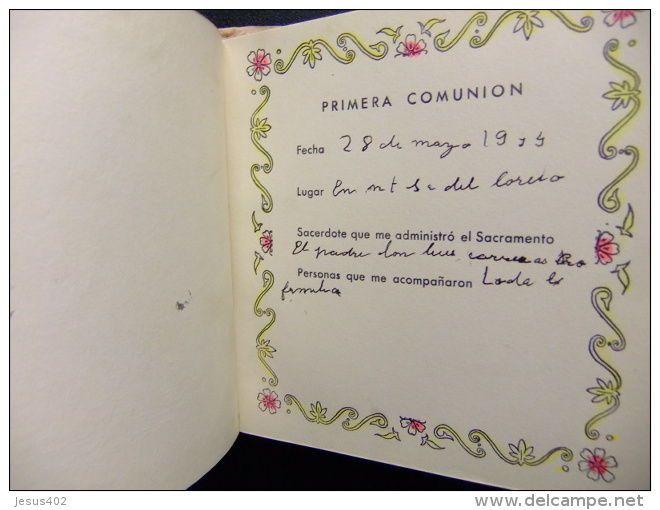 PRIMERA COMUNION
Fecha 28 de mayo 19
Lugar En nt Sr del loreto
Sacerdote que me administró el Sacramento
El padre don luis
Personas que me acompañaron Toda la
familia
Jesus402
delcampe.net